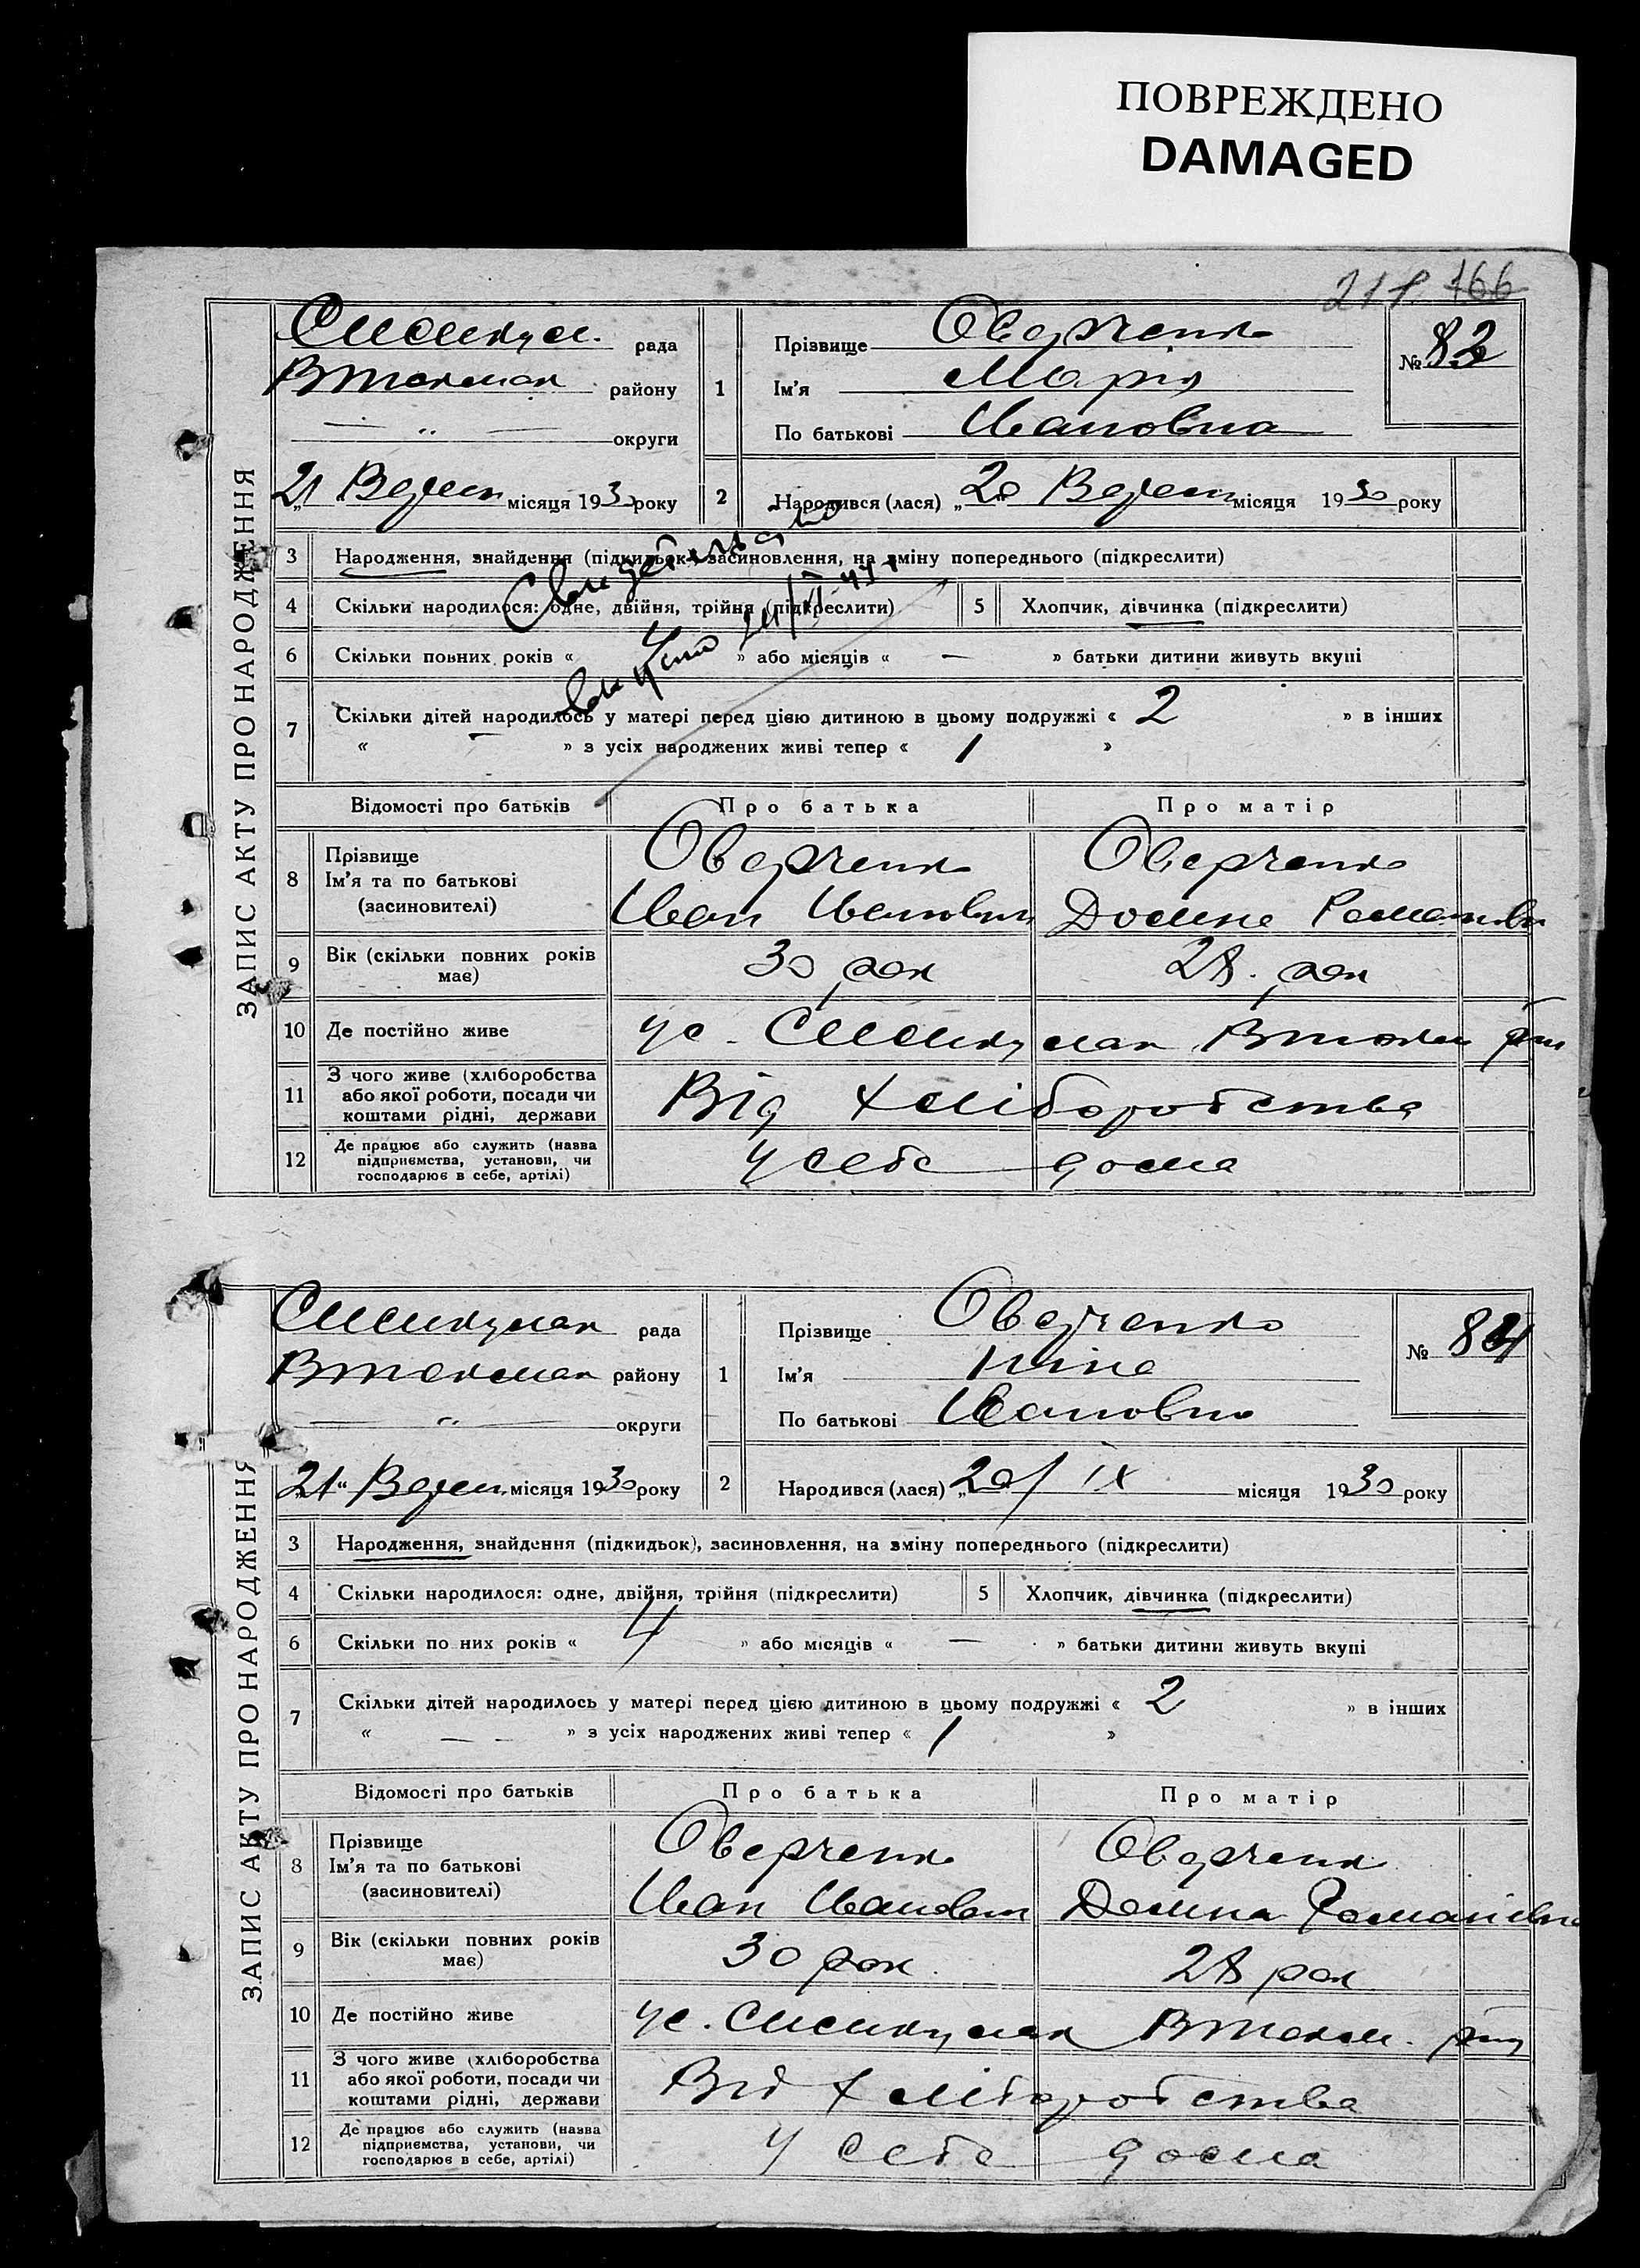 ПОВРЕЖДЕНО
DAMAGED
166
рада
району
округи
1
Прізвище Оверченко
Ім'я Марія
По батькові Ивановна
№ 83
21 Верес місяця 1930 року
2
Народився (лася) „20 Верес місяця 1930 року
ЗАПИС АКТУ ПРО НАРОДЖЕННЯ
3 Народження, знайдення (підкидьок), засиновлення, на зміну попереднього (підкреслити)
4 Скільки народилося: одне, двійня, трійня (підкреслити)
5 Хлопчик, дівчинка (підкреслити)
6 Скільки повних років « 4 » або місяців « — » батьки дитини живуть вкупі
7 Скільки дітей народилось у матері перед цією дитиною в цьому подружжі « 2 » в інших
« — » з усіх народжених живі тепер « 1 »
Відомості про батьків
Про батька
Про матір
8 Прізвище
Ім'я та по батькові
(засиновителі)
Оверченко
Иван Иванович
Оверченко
Домна Романовн
9 Вік (скільки повних років
має)
30 рок
28. рок
10 Де постійно живе
у с.
11 З чого живе (хліборобства
або якої роботи, посади чи
коштами рідні, держави
Від хліборобства
12 Де працює або служить (назва
підприємства, установи, чи
господарює в себе, артілі)
У себе дома
рада
району
округи
1
Прізвище Оверченко
Ім'я Ніна
По батькові Ивановна
№ 84
„21“ Верес. місяця 1930 року
2
Народився (лася) „20/IX місяця 1930 року
ЗАПИС АКТУ ПРО НАРОДЖЕННЯ
3 Народження, знайдення (підкидьок), засиновлення, на зміну попереднього (підкреслити)
4 Скільки народилося: одне, двійня, трійня (підкреслити)
5 Хлопчик, дівчинка (підкреслити)
6 Скільки по них років « 4 » або місяців « — » батьки дитини живуть вкупі
7 Скільки дітей народилось у матері перед цією дитиною в цьому подружжі « 2 » в інших
« — — » з усіх народжених живі тепер « 1 »
Відомості про батьків
Про батька
Про матір
8 Прізвище
Ім'я та по батькові
(засиновителі)
Оверченко
Иван Иванович
Оверченко
Домна Романівна
9 Вік (скільки повних років
має)
30 рок.
28 рок
10 Де постійно живе
у с.
11 З чого живе (хліборобства
або якої роботи, посади чи
коштами рідні, держави
Від хліборобства
12 Де працює або служить (назва
підприємства, установи, чи
господарює в себе, артілі)
У себе дома